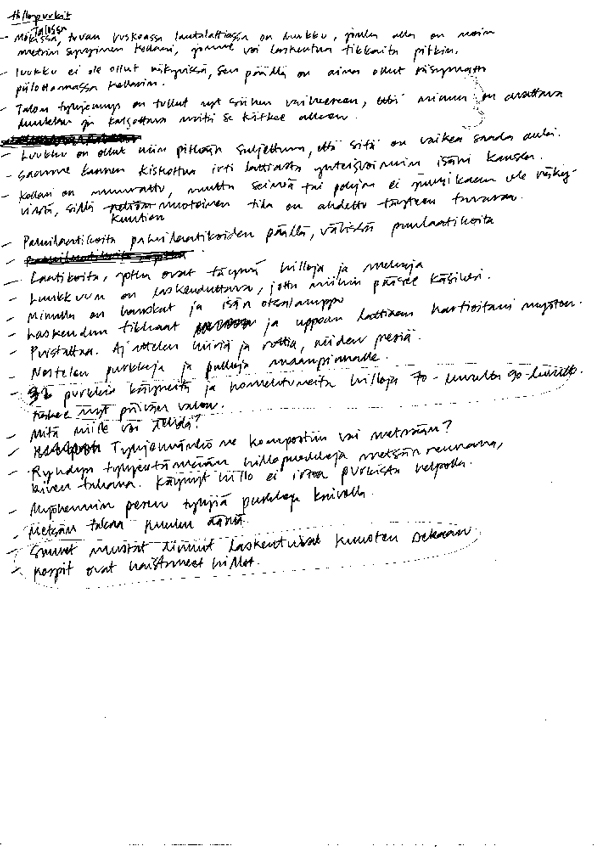 Hillopurkit
Talossa
- Mökissä, tuvan lautalattiassa on luukku, jonka alla on noin
metrin syvyinen kellari, jonne voi laskeutua tikkaita pitkin.
- Luukku ei ole ollut näkyvissä, sen päällä on aina ollut räsymatto
piilottamassa kellarin.
- Talon tyhjennys on tullut nyt siihen vaiheeseen, että minun on avattava
luukku ja katsottava mitä se kätkee alleen.
- Luukku on ollut niin pitkään suljettuna, että sitä on vaikea saada auki.
- Saamme kannen kiskottua irti lattiasta yhteisvoimin isäni kanssa.
- Kellari on muurattu, mutta seiniä tai pohjaa ei juurikaan ole näky-
vissä, sillä muotoinen tila on ahdettu täyteen tavaraa.
kuution
- Pahvilaatikoita pahvilaatikoiden päällä, välissä puulaatikoita
- Laatikoita, jotka ovat täynnä hilloja ja mehuja
- Luukkuun on laskeuduttava, jotta niihin pääsee käsiksi.
- Minulla on hanskat ja isän otsalamppu
- Laskeudun tikkaat ja uppoan lattiaan hartioitani myöten.
- Puistattaa. Ajattelen hiiriä ja rottia, niiden pesiä.
- Nostelen purkkeja ja pulloja maanpinnalle.
- 92 purkkia käyneitä ja homehtuneita hilloja 70-luvulta 90-luvulle
näkee nyt päivän valon.
- Mitä niille voi tehdä?
- Tyhjennänkö ne kompostiin vai metsään?
- Ryhdyn tyhjentämään hillopurkkeja metsän reunaan,
kiven taakse. Käynyt hillo ei irtoa purkista helpolla.
- Myöhemmin pesen tyhjiä purkkeja kaivolla.
- Metsän takaa kuuluu ääniä.
- Suuret mustat linnut laskeutuvat kuusten sekaan
- korpit ovat haistaneet hillot.